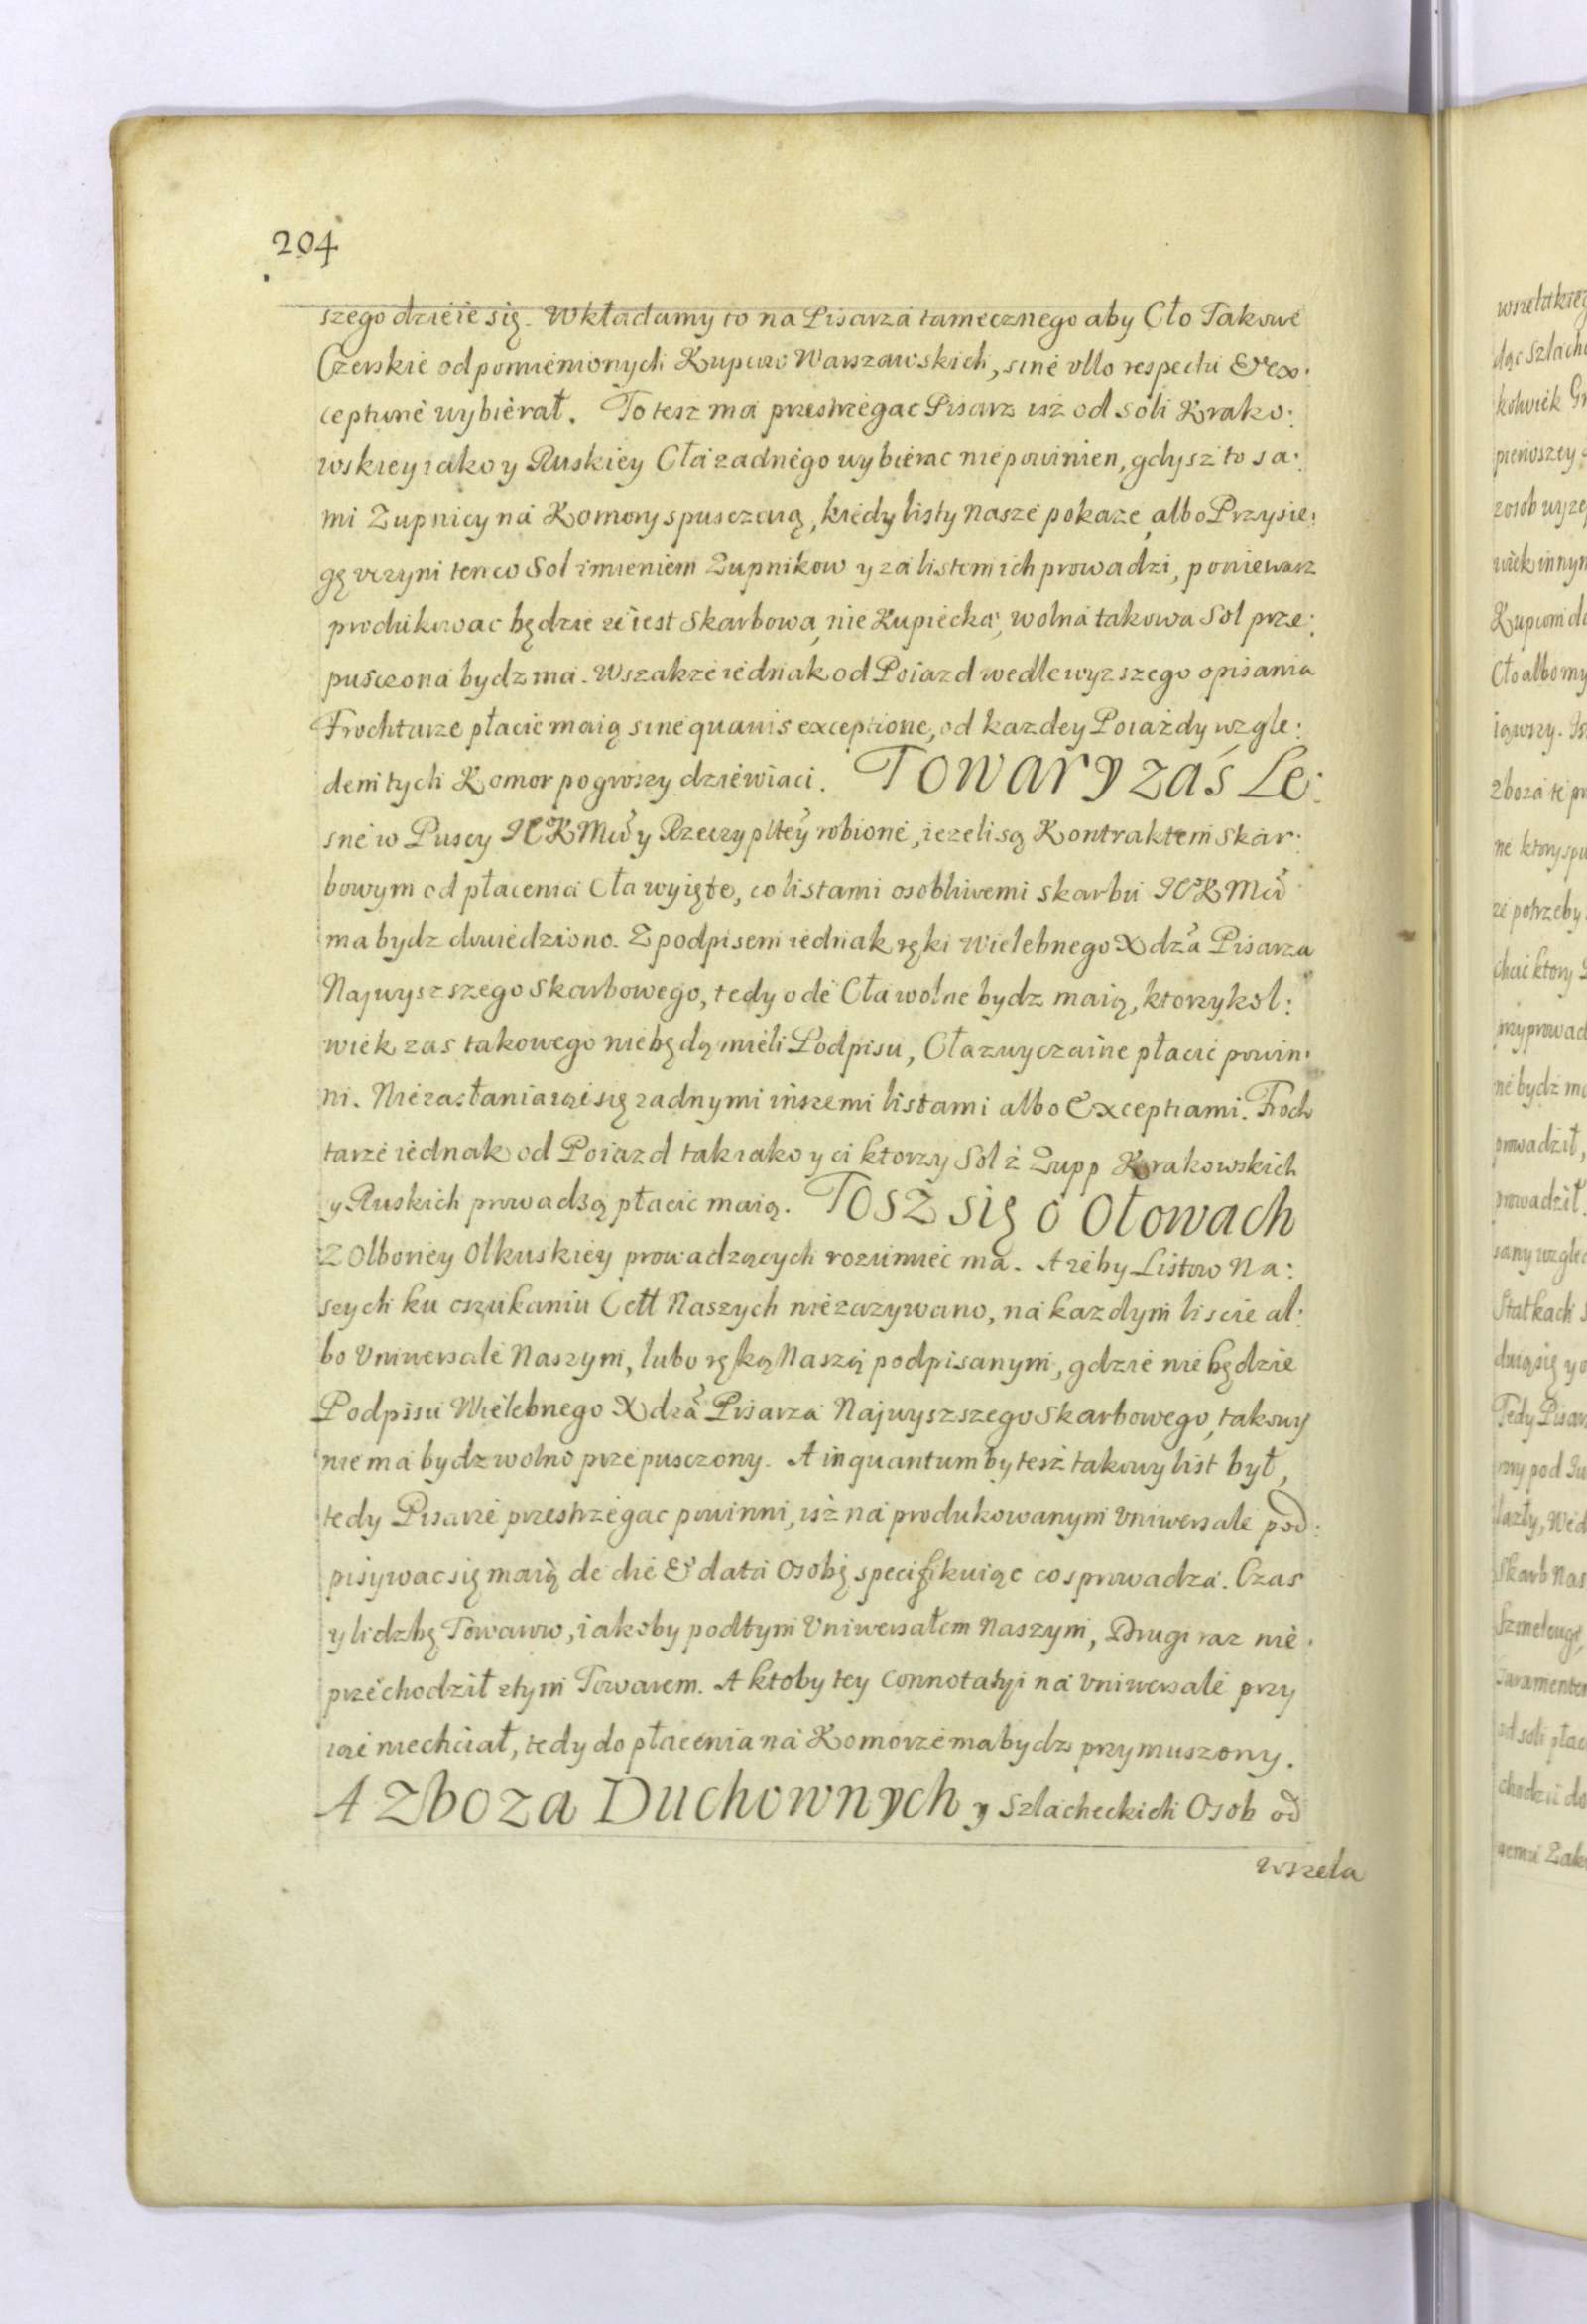 204
szego dzieie się. Wkładamy to na Pisarza tamecznego aby Cło Takowe
Czerskie od pomienionych Kupcow Warszawskich, sine vllo respectu & ex:
ceptione wybierał. To tesz ma przestrzegac Pisarz isz od soli Krako:
wskiey iako y Ruskiey Cła zadnego wybierac niepowinien, gdysz to sa:
mi Zupnicy na Komory spusczaią, kiedy listy nasze pokaze, albo Przysie:
gę vczyni ten co Sol imieniem Zupnikow y za listem ich prowadzi, poniewasz
produkowac będzie ze iest Skarbowa, nie Kupiecka, wolna takowa Sol prze:
pusczona bydz ma. Wszakze iednak od Poiazd wedle wyzszego opisania
Frochtarze płacic maią sine quauis exceptione, od kazdey Poiazdy wzgle:
dem tych Komor po groszy dziewiaci. Towary zaś Le:
sne w Puscy JKMci y Rzeczyptey robione, iezeli są Kontraktem skar:
bowym od płacenia Cła wyięte, co listami osobliwemi skarbu JKMci
ma bydz dowiedziono. Z podpisem iednak ręki Wielebnego Xdza Pisarza
Najwyszszego Skarbowego, tedy ode Cła wolne bydz maią, ktorzykol:
wiek zas takowego niebędą mieli Podpisu, Cła zwyczaine płacic powin:
ni. Niezasłaniaiąc się zadnymi inszemi listami albo Exceptiami. Froch
tarze iednak od Poiazd tak iako y ci ktorzy Sol z Zupp Krakowskich
y Ruskich prowadzą płacic maią. Tosz się o Ołowach
Z Olborney Olkuskiey prowadzących rozumiec ma. A zeby Listow Na:
szych ku oszukaniu Ceł Naszych niezazywano, na kazdym liscie al:
bo Vniwersale Naszym, lubo ręką Naszą podpisanym, gdzie nie będzie
Podpisu Wielebnego Xdza Pisarza Najwyszszego Skarbowego, takowy
nie ma bydz wolno przepusczony. A in quantum by tesz takowy list był,
tedy Pisarze przestrzegac powinni, isz na produkowanym Vniwersale pod:
pisywac się maią de die & data Osobę specifikuiąc co sprowadza. Czas
y lidzbę Towarow, iakoby pod tym Vniwersałem Naszym, Drugi raz nie
przechodził z tym Towarem. A ktoby tey Connotatyi na Vniwersale przy
iąc niechciał, tedy do płacenia na Komorze ma bydz przymuszony.
A Zboza Duchownych y Szlacheckich Osob od
wszela